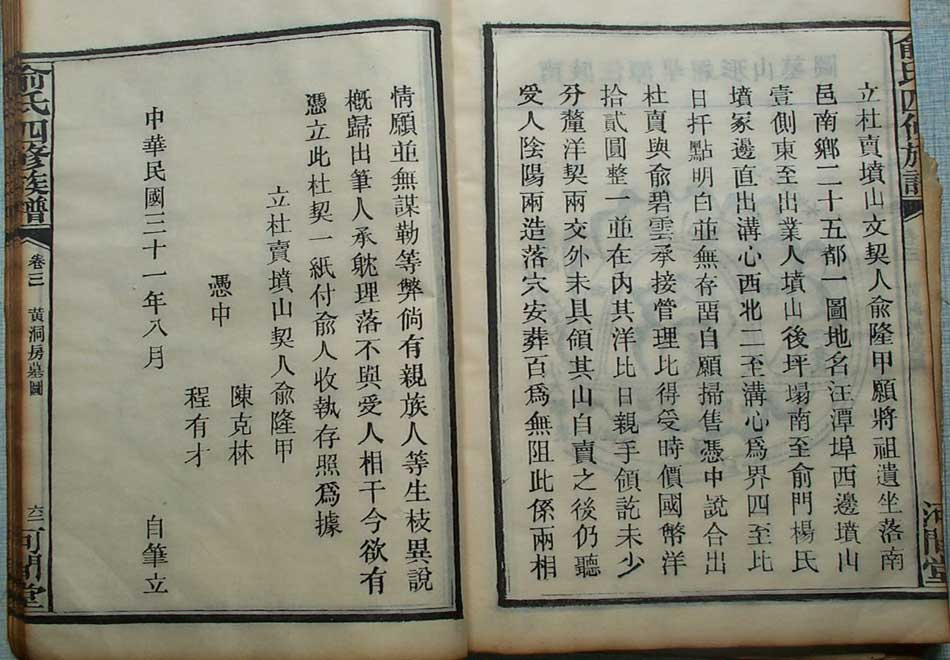 俞氏四修族譜
河間堂
立杜賣墳山文契人俞隆甲願將祖遺坐落南
邑南鄉二十五都一圖地名汪潭埠西邊墳山
壹側東至出業人墳山後坪塌南至俞門楊氏
墳冢邊直出溝心西北二至溝心爲界四至比
日扦點明白並無存畱自願掃售憑中說合出
杜賣與俞碧雲承接管理比得受時價國幣洋
拾貳圓整一並在內其洋比日親手領訖未少
分釐洋契兩交外未具領其山自賣之後仍聽
受人陰陽兩造落穴安葬百爲無阻此係兩相
情願並無謀勒等弊倘有親族人等生枝異說
槪歸出筆人承躭理落不與受人相干今欲有
憑立此杜契一紙付俞人收執存照爲據
立杜賣墳山契人俞隆甲
憑中
陳克林
程有才
中華民國三十一年八月 自筆立
俞氏四修族譜
卷三 黃洞房墓圖
河間堂